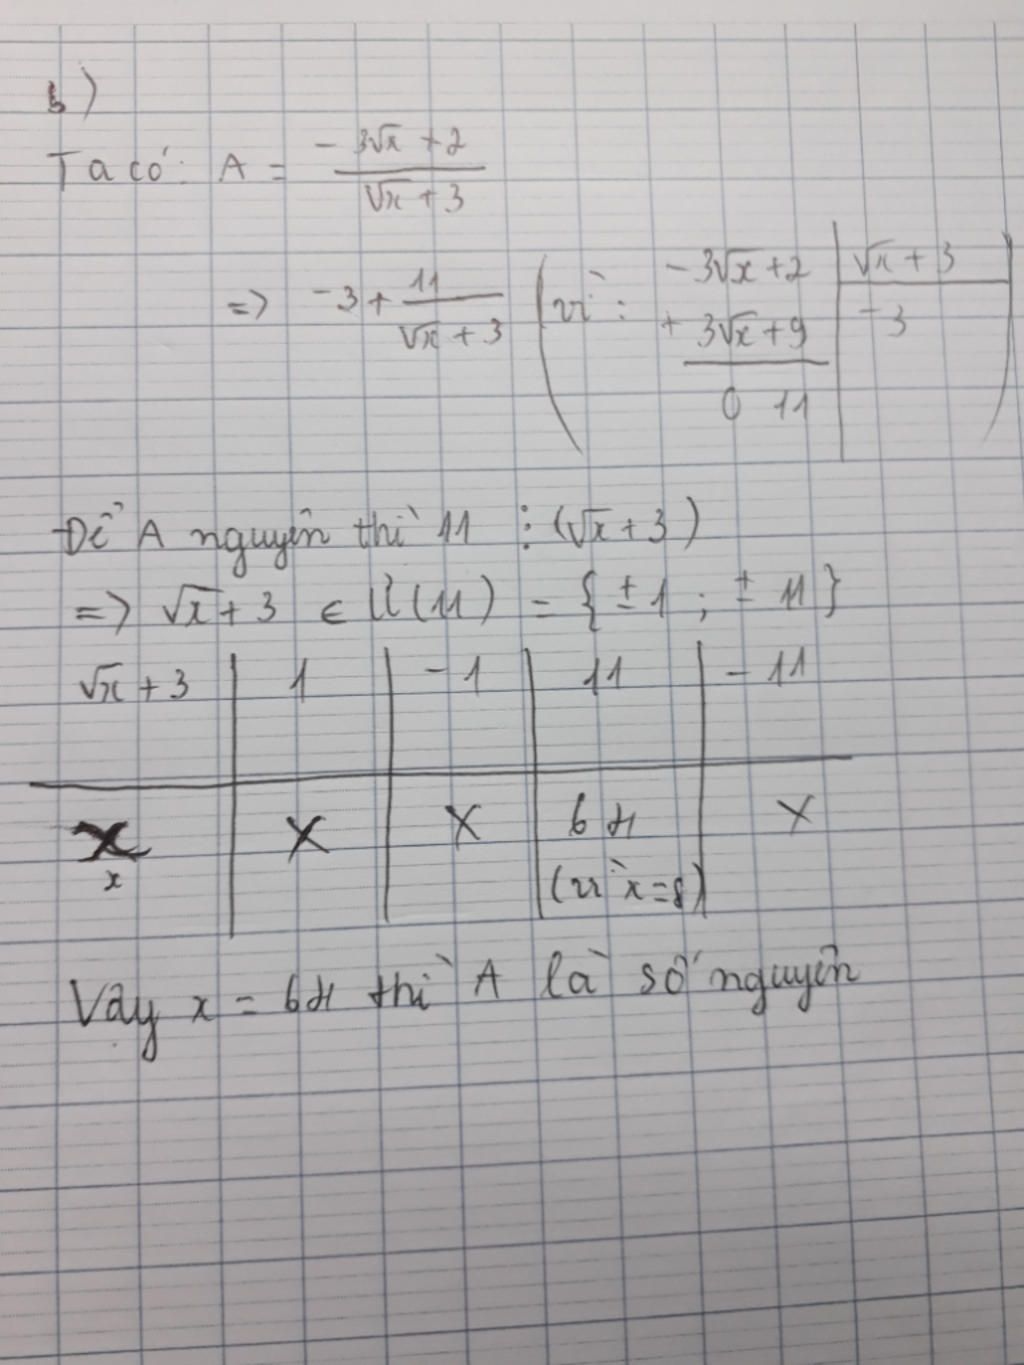 b)
Ta có: A = (-3√x + 2)/(√x + 3)
=> -3 + 11/(√x + 3) (vì: -3√x + 2 | √x + 3
+ 3√x + 9 | -3
0 11 )
Để A nguyên thì 11 ⋮ (√x + 3)
=> √x + 3 ∈ Ư(11) = {±1 ; ±11}
√x + 3 | 1 | -1 | 11 | -11
x | X | X | 64 | X
x (vì x = 8)
Vậy x = 64 thì A là số nguyên